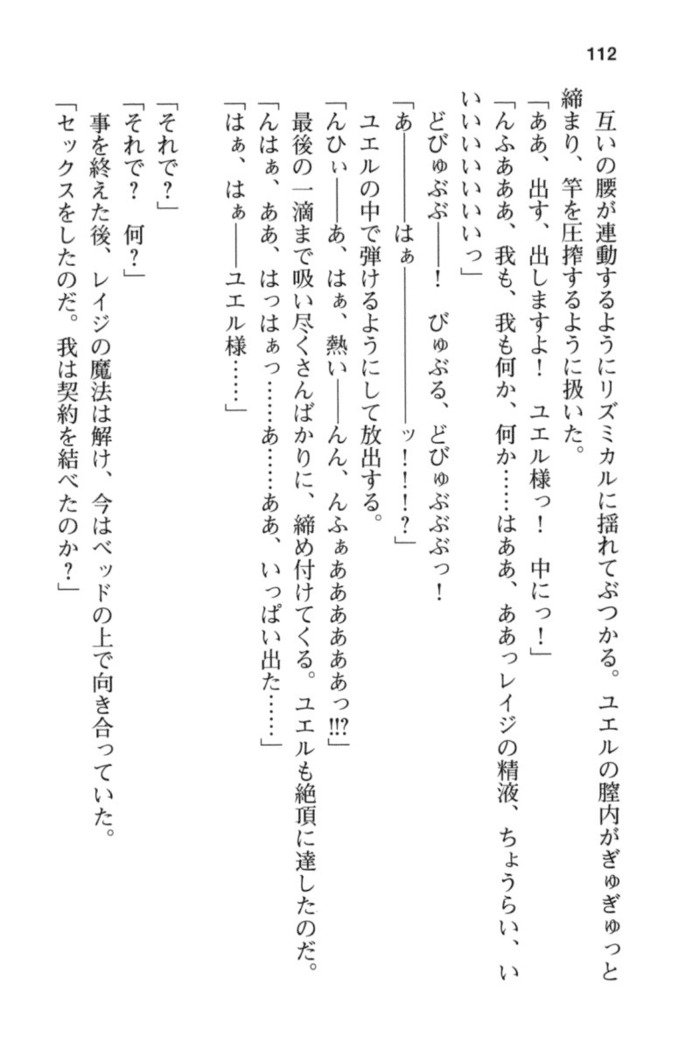 112
互いの腰が連動するようにリズミカルに揺れてぶつかる。ユエルの膣内がぎゅぎゅっと
締まり、竿を圧搾するように扱いた。
「ああ、出す、出しますよ！　ユエル様っ！　中にっ！」
「んふあああ、我も、我も何か、何か……はああ、ああっレイジの精液、ちょうらい、い
いいいいいいいっ」
どびゅぶぶ――！　びゅぶる、どびゅぶぶぶっ！
「あ――――はぁ――――――――ッ！！！？」
ユエルの中で弾けるようにして放出する。
「んひぃ――あ、はぁ、熱い――んん、んふぁああああああっ!!!?」
最後の一滴まで吸い尽くさんばかりに、締め付けてくる。ユエルも絶頂に達したのだ。
「んはぁ、ああ、はっはぁっ……あ……ああ、いっぱい出た……」
「はぁ、はぁ――ユエル様……」
「それで？」
「それで？　何？」
事を終えた後、レイジの魔法は解け、今はベッドの上で向き合っていた。
「セックスをしたのだ。我は契約を結べたのか？」